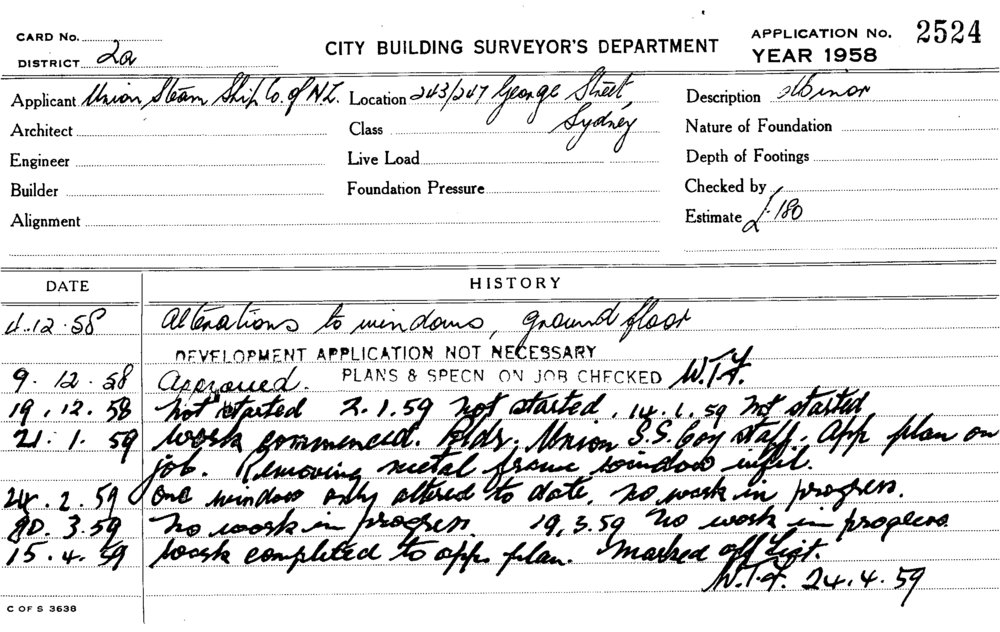 CARD No. APPLICATION No. 2524
DISTRICT 2a CITY BUILDING SURVEYOR'S DEPARTMENT YEAR 1958
Applicant Union Steam Ship Co. of N.Z. Location 243/247 George Street, Description Minor
Architect Class Sydney Nature of Foundation
Engineer Live Load Depth of Footings
Builder Foundation Pressure Checked by
Alignment Estimate £180
DATE HISTORY
4.12.58 Alterations to windows, ground floor
DEVELOPMENT APPLICATION NOT NECESSARY
9.12.58 Approved. PLANS & SPECN ON JOB CHECKED W.T.F.
19.12.58 Not started 2.1.59 Not started. 14.1.59 Not started
21.1.59 Work commenced. Bldr. Union S.S. Coy staff. App plan on
job. Removing metal frame window infil.
24.2.59 One window only altered to date, no work in progress.
3.59 No work in progress 19.3.59 No work in progress
15.4.59 Work completed to app. plan. Marked off List.
W.T.F. 24.4.59
C OF S 3638